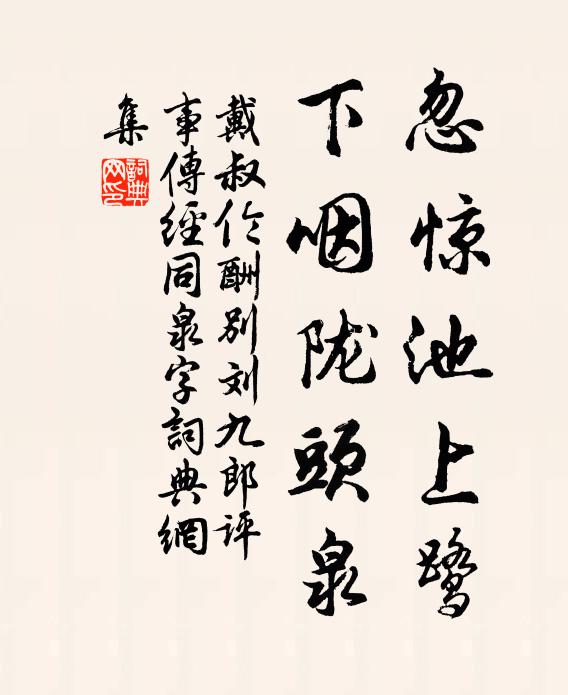 忽惊池上鹭
下咽陇頭泉
戴叔伦酬别刘九郎评
事傳經同泉字詞典網
集
詞典網印